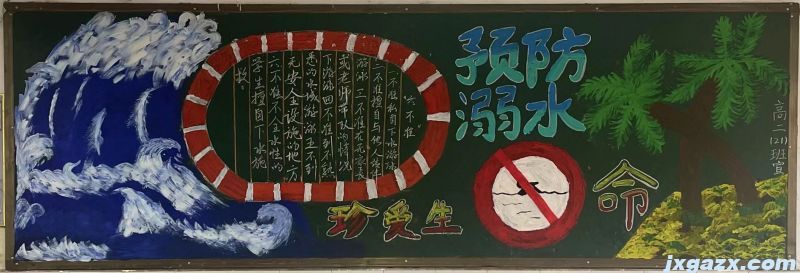 预防
溺水
六不准
一不准私自下水游泳
二不准擅自与他人结伴
游泳三不准在无家长
或老师带队的情况
下游泳四不准到不熟
悉的水域游泳五不到
无安全设施的地方
六不准不会水性的
学生擅自下水施
救。
珍爱生命
高二(21)班宣
jxgazx.com